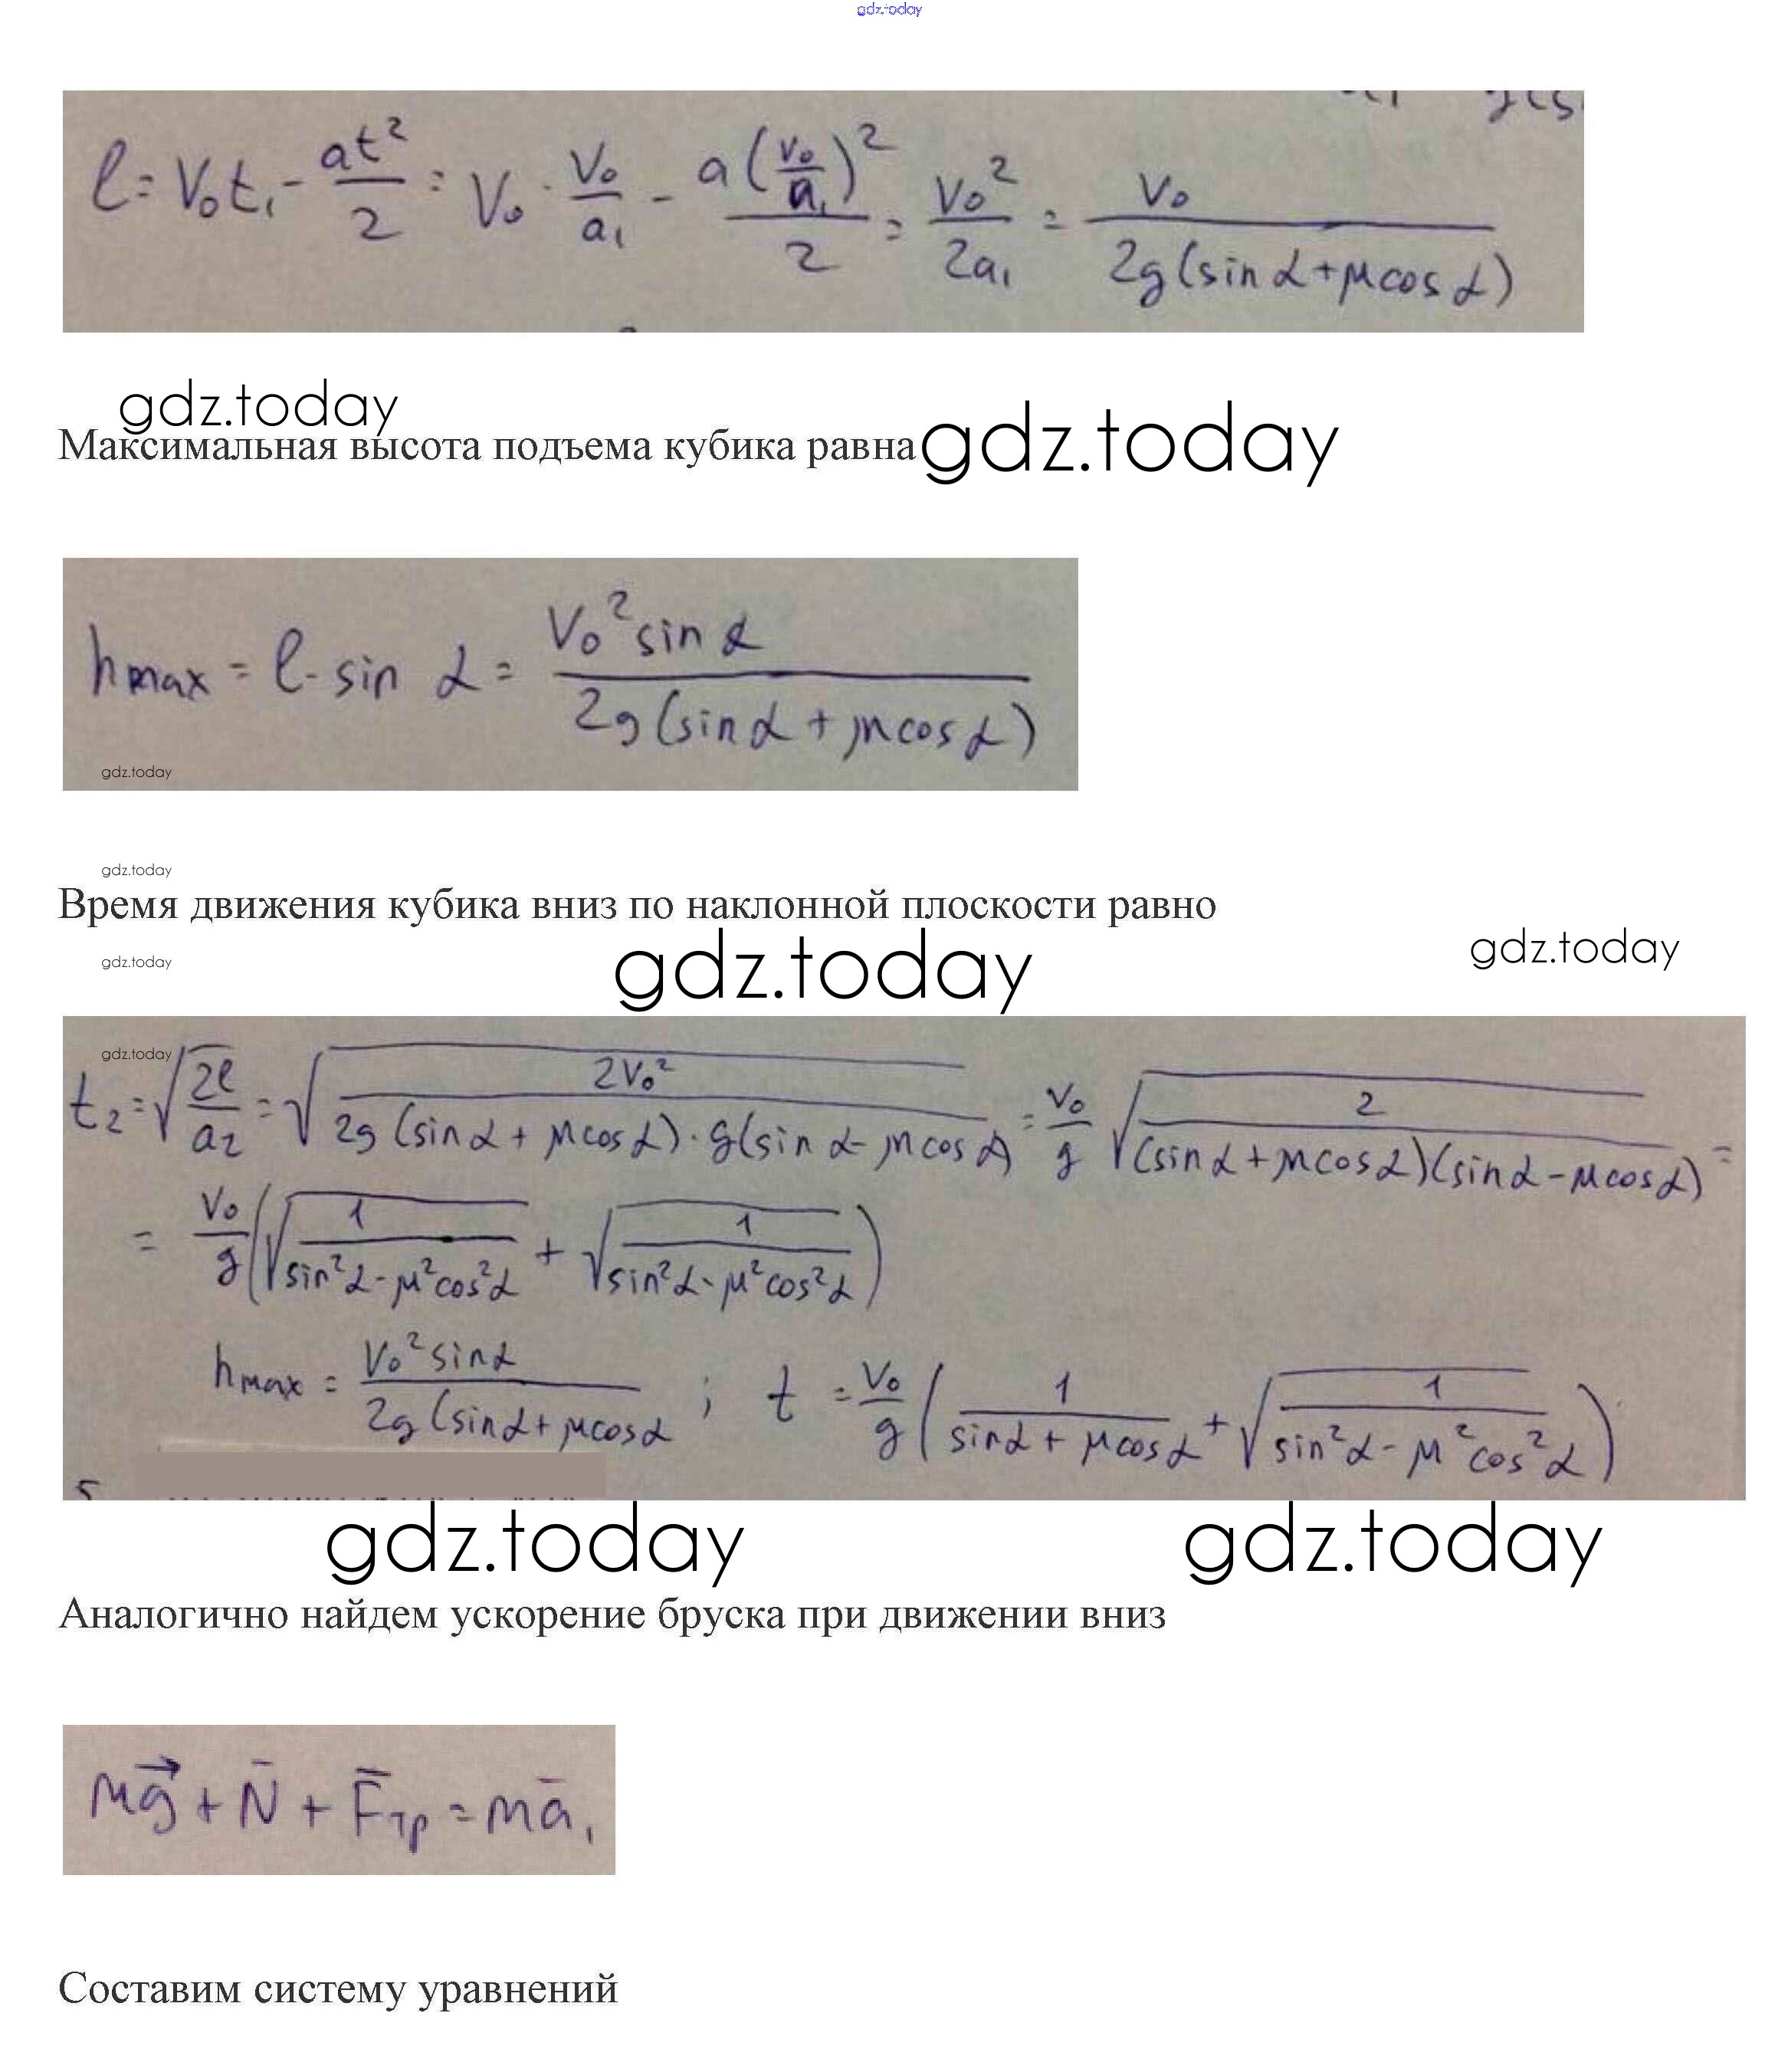 gdz.today
l = V₀t₁ - at²/2 = V₀ · V₀/a₁ - a(V₀/a₁)²/2 = V₀²/2a₁ = V₀/2g(sin α + μcos α)
gdz.today
Максимальная высота подъема кубика равна gdz.today
hmax = l · sin α = V₀² sin α / 2g(sin α + μcos α)
gdz.today
gdz.today
Время движения кубика вниз по наклонной плоскости равно
gdz.today
gdz.today
gdz.today
gdz.today
t₂ = √(2l/a₂) = √(2V₀² / 2g(sin α + μcos α) · g(sin α - μcos α)) = V₀/g √(2/(sin α + μcos α)(sin α - μcos α)) =
= V₀/g (√(1/sin²α - μ²cos²α) + √(1/sin²α - μ²cos²α))
hmax = V₀² sin α / 2g(sin α + μcos α ; t = V₀/g (1/sin α + μcos α + √(1/sin²α - μ²cos²α))
gdz.today gdz.today
Аналогично найдем ускорение бруска при движении вниз
mg⃗ + N̄ + F̄тр = mā₁
Составим систему уравнений